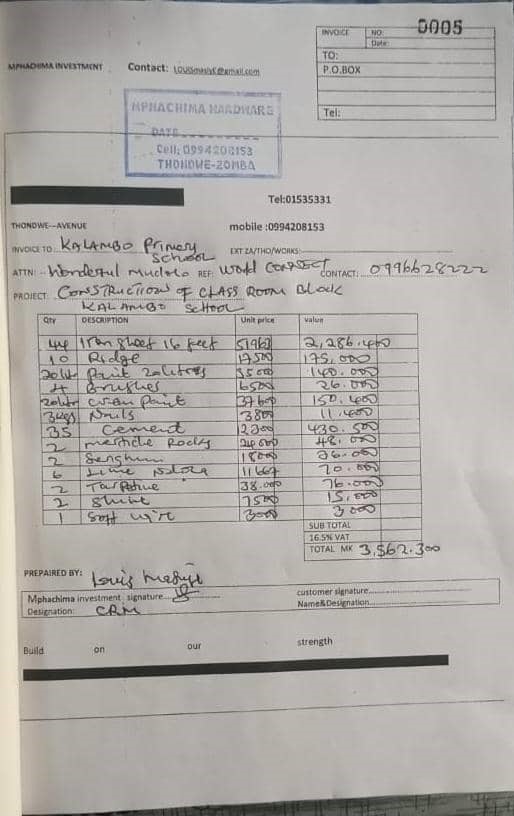 INVOICE NO: 0005
Date:
TO:
P.O.BOX
Tel:
MPHACHIMA INVESTMENT Contact:
MPHACHIMA HARDWARE
DATE
Cell: 0994208153
THONDWE-ZOMBA
Tel:01535331
THONDWE---AVENUE mobile :0994208153
INVOICE TO: KALAMBO Primary School EXT ZA/THO/WORKS:
ATTN: Wonderful Mudolo REF: World Connect CONTACT: 0996628222
PROJECT: CONSTRUCTION OF CLASS ROOM BLOCK
KALAMBO SCHOOL
Qty DESCRIPTION Unit price value
44 Iron sheet 16 feet 2,286.400
10 Ridge 17500 175,000
Paint 20 litres 3500 140.000
4 Brushes 6500 26.000
paint 37600 150.400
3kgs Nails 3800 11.400
35 Cement 430.500
2 24000 48.000
2 18000 36.000
6 Lime 11667 70.000
2 38.000 76.000
2 7500 15,000
1 Soft wire 3000 3000
SUB TOTAL
16.5% VAT
TOTAL MK 3,562.300
PREPAIRED BY: Louis
Mphachima investment signature
customer signature
Designation: CRM
Name&Designation
Build on our strength